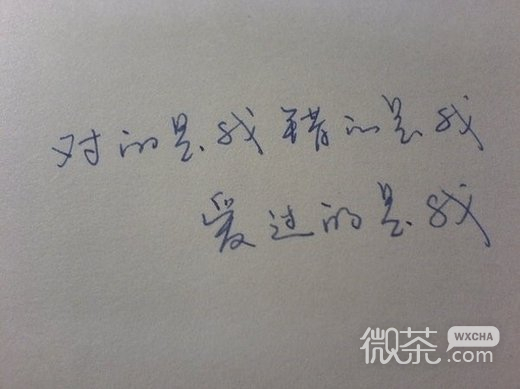 对的是我错的是我
爱过的是我
微茶 WXCHA